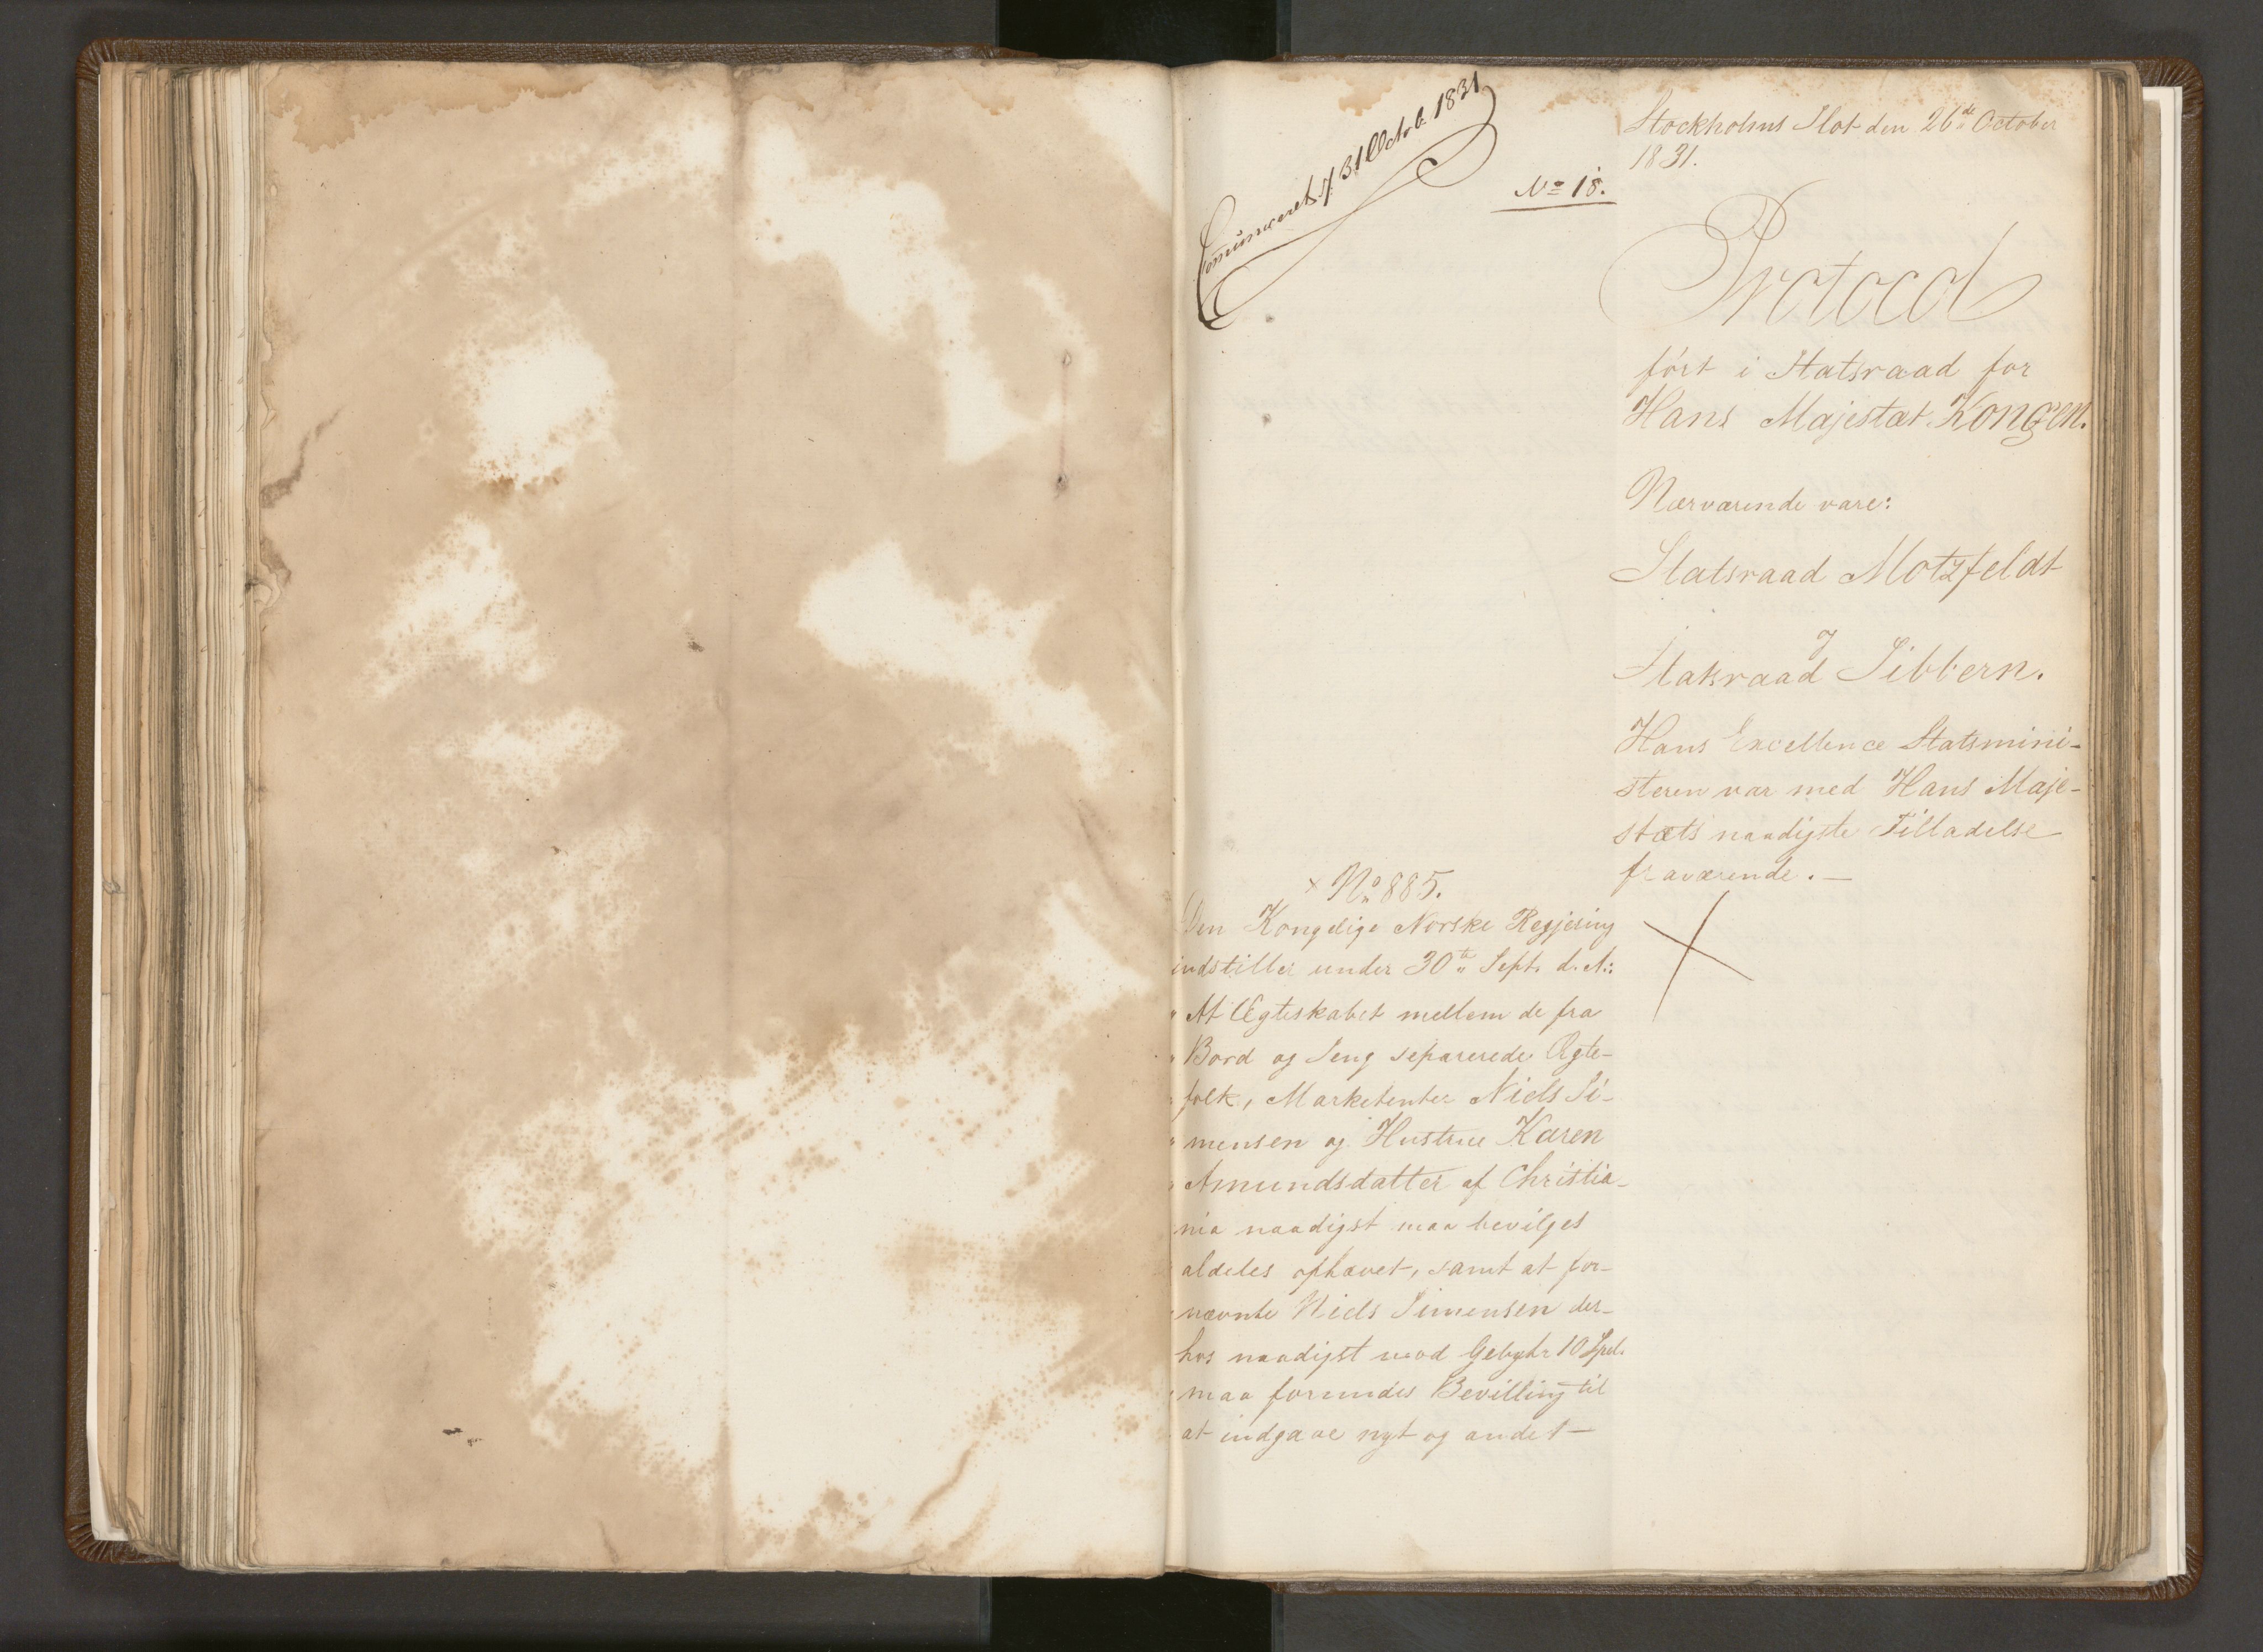 31 Octob. 1831
No 18.
Stockholms Slot den 26de October
1831.
Protocol
ført i Statsraad for
Hans Majestæt Kongen.
Nærværende vare:
Statsraad Motzfeldt
og
Statsraad Sibbern.
Hans Excellence Statsmini-
steren var med Hans Maje-
stæts naadigste Tilladelse
fraværende.—
× No 885.
Den Kongelige Norske Regjering
indstiller under 30te Sept. d. A:
" At Ægteskabet mellem de fra
" Bord og Seng separerede Ægte-
" folk, Marketenter Niels Si-
" mensen og Hustrue Karen
" Amundsdatter af Christia-
nia naadigst maa bevilges
aldeles ophævet, samt at for-
" nævnte Niels Simensen der-
hos naadigst mod Gebyhr 10 Spd.
" maa forundes Bevilling til
at indgaae nyt og andet